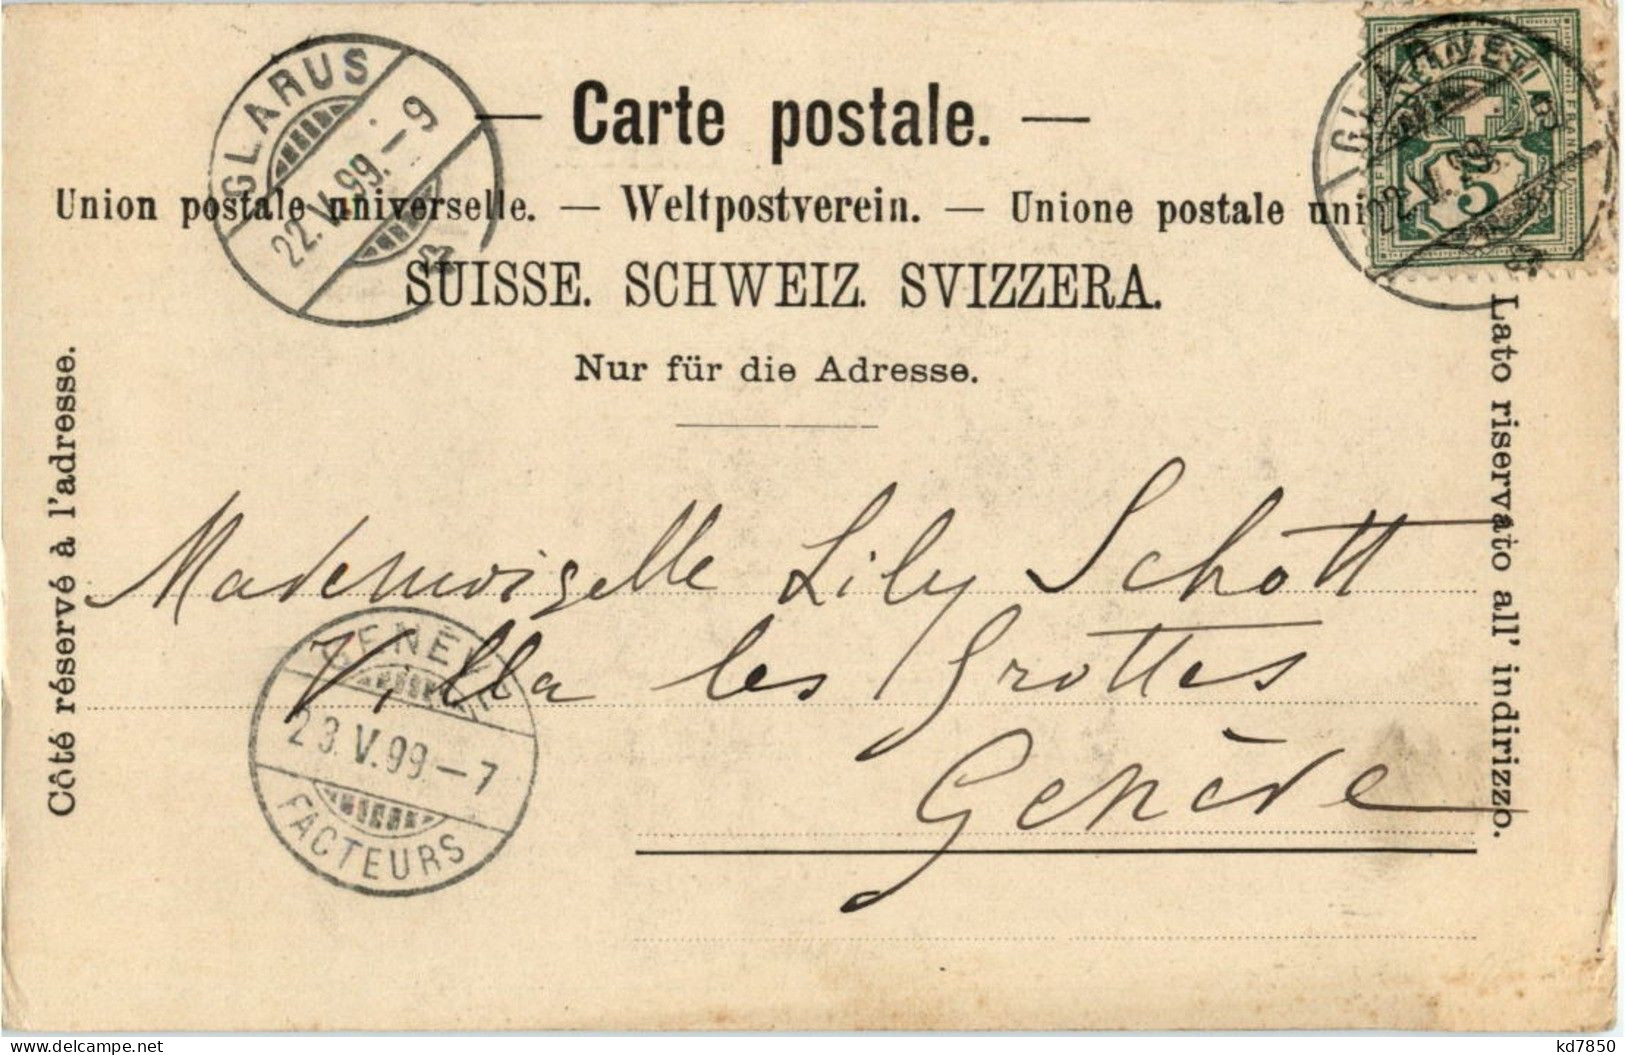 GLARUS
22.V.99.-9
— Carte postale. —
Union postale universelle. — Weltpostverein. — Unione postale uni
SUISSE. SCHWEIZ. SVIZZERA.
Nur für die Adresse.
Côté réservé à l'adresse.
Lato riservato all' indirizzo.
22.V.99.
5
FRANCO
Mademoiselle Lily Schott
Villa les Grottes
Genève
GENÈVE
23.V.99.-7
FACTEURS
delcampe.net
kd7850